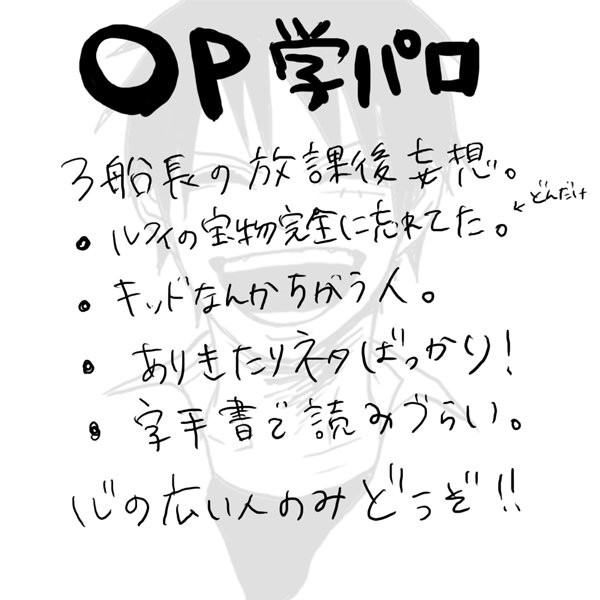 OP学パロ
3船長の放課後妄想。
・ルフィの宝物完全に忘れてた。←どんだけ
・キッドなんかちがう人。
・ありきたりネタばっかり!
・字手書で読みづらい。
心の広い人のみどうぞ!!